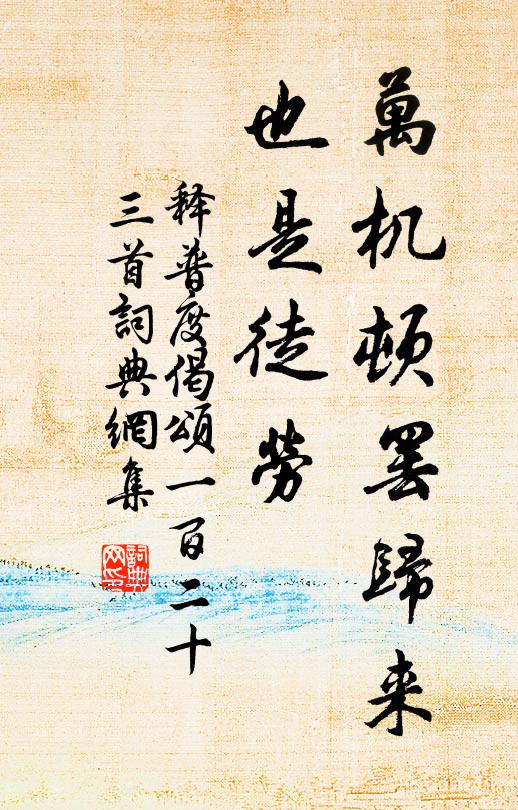 萬机頓罢歸来
也是徒勞
释普度偈頌一百二十
三首詞典網集
詞典
网印